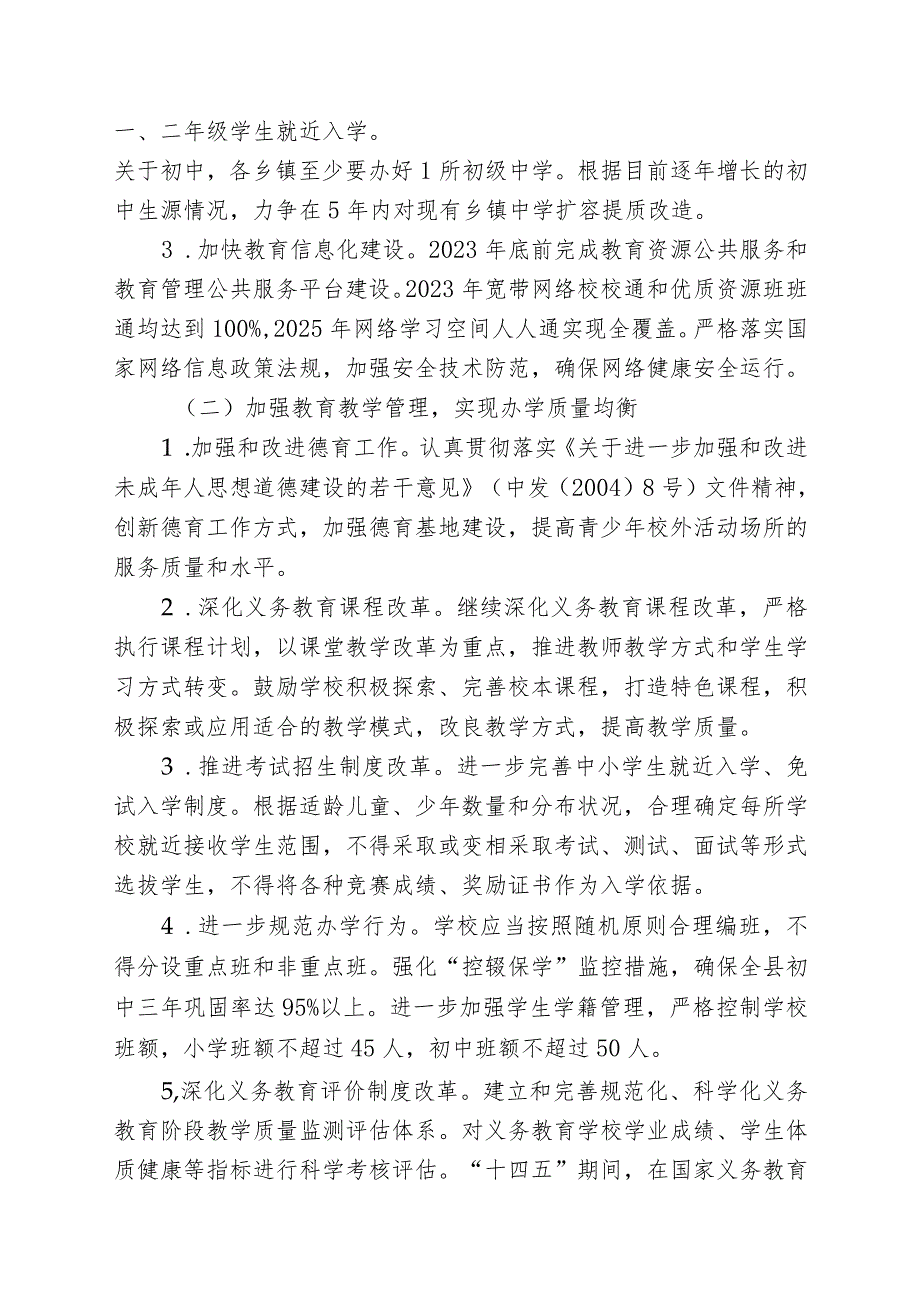 一、二年级学生就近入学。
关于初中，各乡镇至少要办好1所初级中学。根据目前逐年增长的初
中生源情况，力争在5年内对现有乡镇中学扩容提质改造。
3 .加快教育信息化建设。2023年底前完成教育资源公共服务和
教育管理公共服务平台建设。2023年宽带网络校校通和优质资源班班
通均达到100%,2025年网络学习空间人人通实现全覆盖。严格落实国
家网络信息政策法规，加强安全技术防范，确保网络健康安全运行。
（二）加强教育教学管理，实现办学质量均衡
1 .加强和改进德育工作。认真贯彻落实《关于进一步加强和改进
未成年人思想道德建设的若干意见》（中发（2004）8号）文件精神，
创新德育工作方式，加强德育基地建设，提高青少年校外活动场所的
服务质量和水平。
2 .深化义务教育课程改革。继续深化义务教育课程改革，严格
执行课程计划，以课堂教学改革为重点，推进教师教学方式和学生学
习方式转变。鼓励学校积极探索、完善校本课程，打造特色课程，积
极探索或应用适合的教学模式，改良教学方式，提高教学质量。
3 .推进考试招生制度改革。进一步完善中小学生就近入学、免
试入学制度。根据适龄儿童、少年数量和分布状况，合理确定每所学
校就近接收学生范围，不得采取或变相采取考试、测试、面试等形式
选拔学生，不得将各种竞赛成绩、奖励证书作为入学依据。
4 .进一步规范办学行为。学校应当按照随机原则合理编班，不
得分设重点班和非重点班。强化“控辍保学”监控措施，确保全县初
中三年巩固率达95%以上。进一步加强学生学籍管理，严格控制学校
班额，小学班额不超过45人，初中班额不超过50人。
5,深化义务教育评价制度改革。建立和完善规范化、科学化义务
教育阶段教学质量监测评估体系。对义务教育学校学业成绩、学生体
质健康等指标进行科学考核评估。“十四五”期间，在国家义务教育